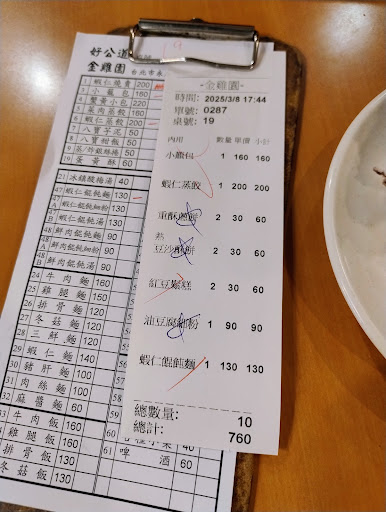 好公道
金雞園 台北市永
1 蝦仁燒賣 200
2 小籠包 160
3 蟹黃小包 220
4 菜肉蒸餃 180
6 蝦仁蒸餃 200
7 八寶芋泥 50
8 八寶甜飯 50
19 蛋黃酥 60
21 冰鎮酸梅湯 40
47 蝦仁餛飩麵 130
蝦仁餛飩細粉 130
蝦仁餛飩湯 90
48 鮮肉餛飩麵 90
鮮肉餛飩細粉 90
鮮肉餛飩湯 60
24 牛肉麵 160
25 雞腿麵 150
26 排骨麵 130
27 冬菇麵 120
28 三鮮麵 150
29 蝦仁麵 140
30 豬肝麵 100
31 肉絲麵 100
32 麻醬麵 60
33 牛肉飯 160
雞腿飯 150
排骨飯 130
冬菇飯 130
61 啤酒 60
-金雞園-
時間: 2025/3/8 17:44
單號: 0287
桌號: 19
內用 數量 單價 小計
小籠包 1 160 160
蝦仁蒸餃 1 200 200
2 30 60
熱
2 30 60
紅豆鬆糕 2 30 60
油豆腐細粉 1 90 90
蝦仁餛飩麵 1 130 130
總數量: 10
總計: 760